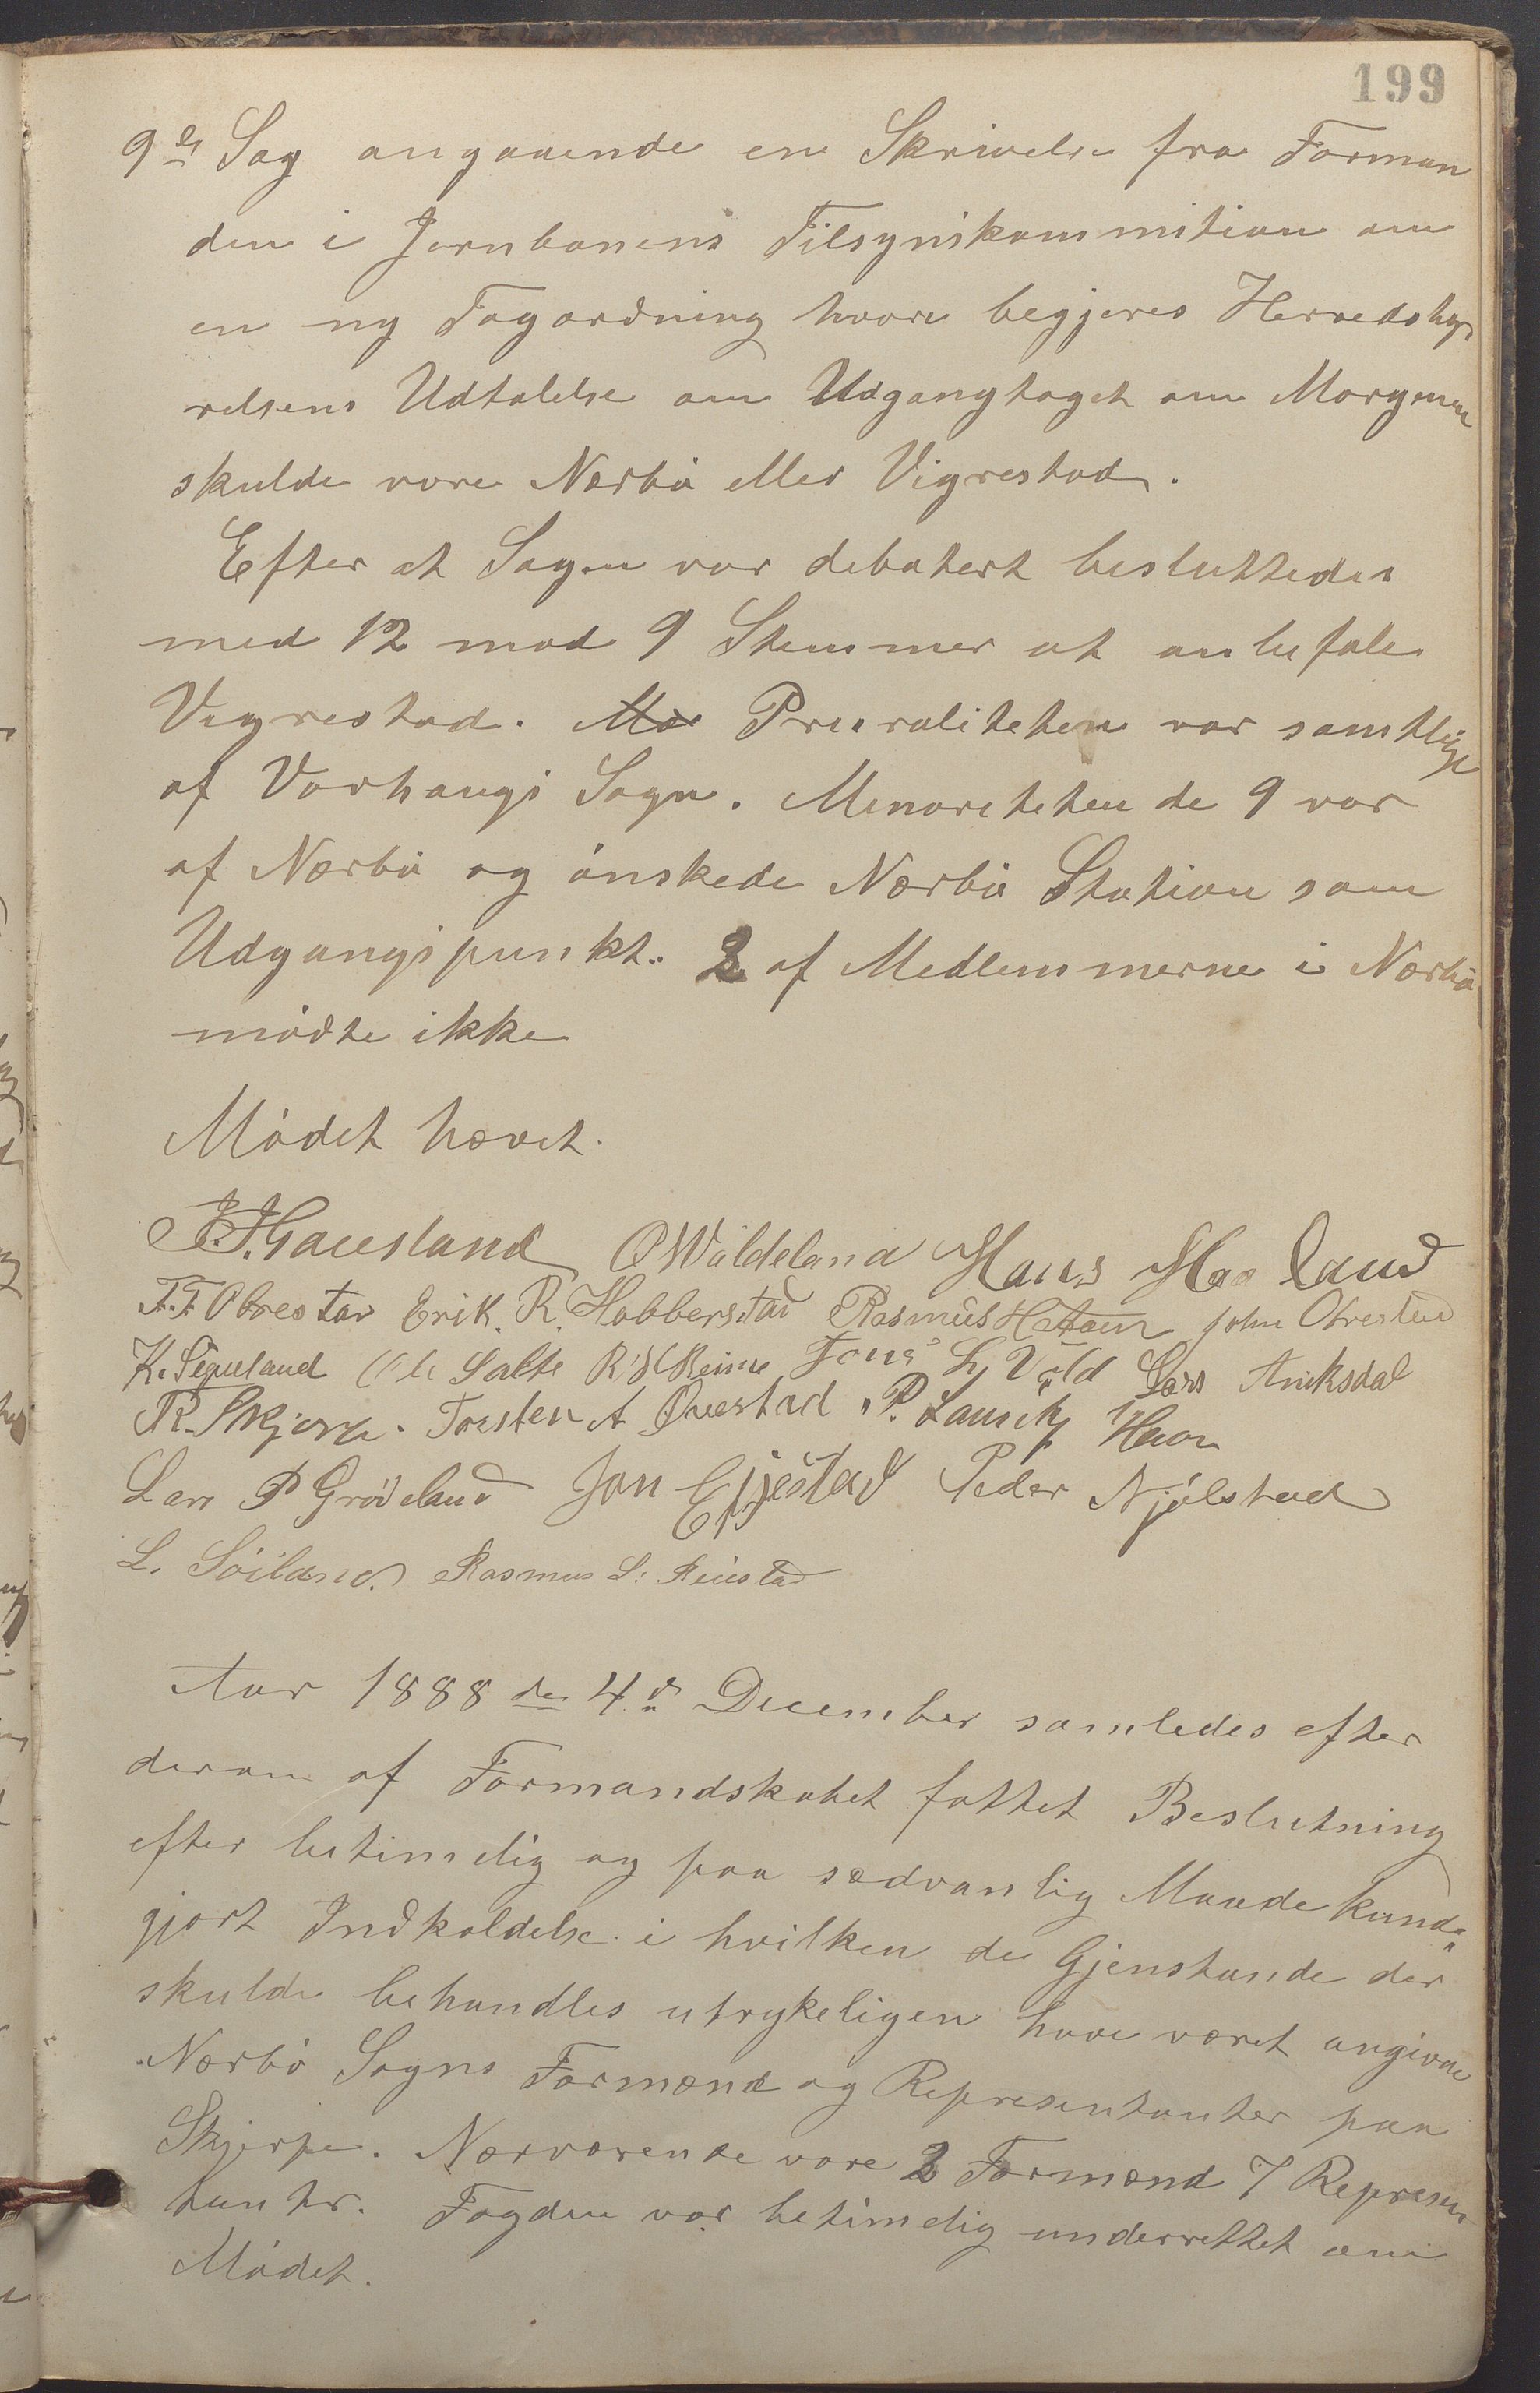 199
9de Sag angaaende en Skrivelse fra Forman
den i Jernbanens Tilsynskommition om
en ny Togordning hvori begjeres Herredsty
relsens Udtalelse om Udgangtoget om Morgenen
skulde vere Nærbø eller Vigrestad.
Efter at Sagen var debatert besluttedes
med 12 mod 9 Stemmer at anbefale
Vigrestad. Mo Pruraliteten var samtlige
af Varhaugs Sogn. Menoreteten de 9 var
af Nærbø og ønskede Nærbø Station som
Udgangspunkt. 2 af Medlemmerne i Nærbø
mødte ikke
Mødet hævet.
Haugland O Waldeland Hans Haaland
T.T Obrestad Erik. R. Hobberstad Rasmus John Obrestad
K. Sigveland Ole Salte R Reime Tons L Vold Lars Aniksdal
R. Skjerpe. Torsten A Querstad P. Haar
Lars P Grødeland Jon Eggestad Peder Njølstad
L. Søiland. Rasmus S. Reiestad
Aar 1888 den 4de December samledes efter
derom af Formandskabet fattet Beslutning
efter betimelig og paa sædvanlig Maade kund„
gjort Indkaldelse i hvilken de Gjenstande der
skulde behandles utrykeligen have været angivne
Nærbø Sogns Formænd og Representanter paa
Skjerpe. Nærværende vare 2 Formænd 7 Represen
tanter. Fogden var betimelig underrettet om
Mødet.